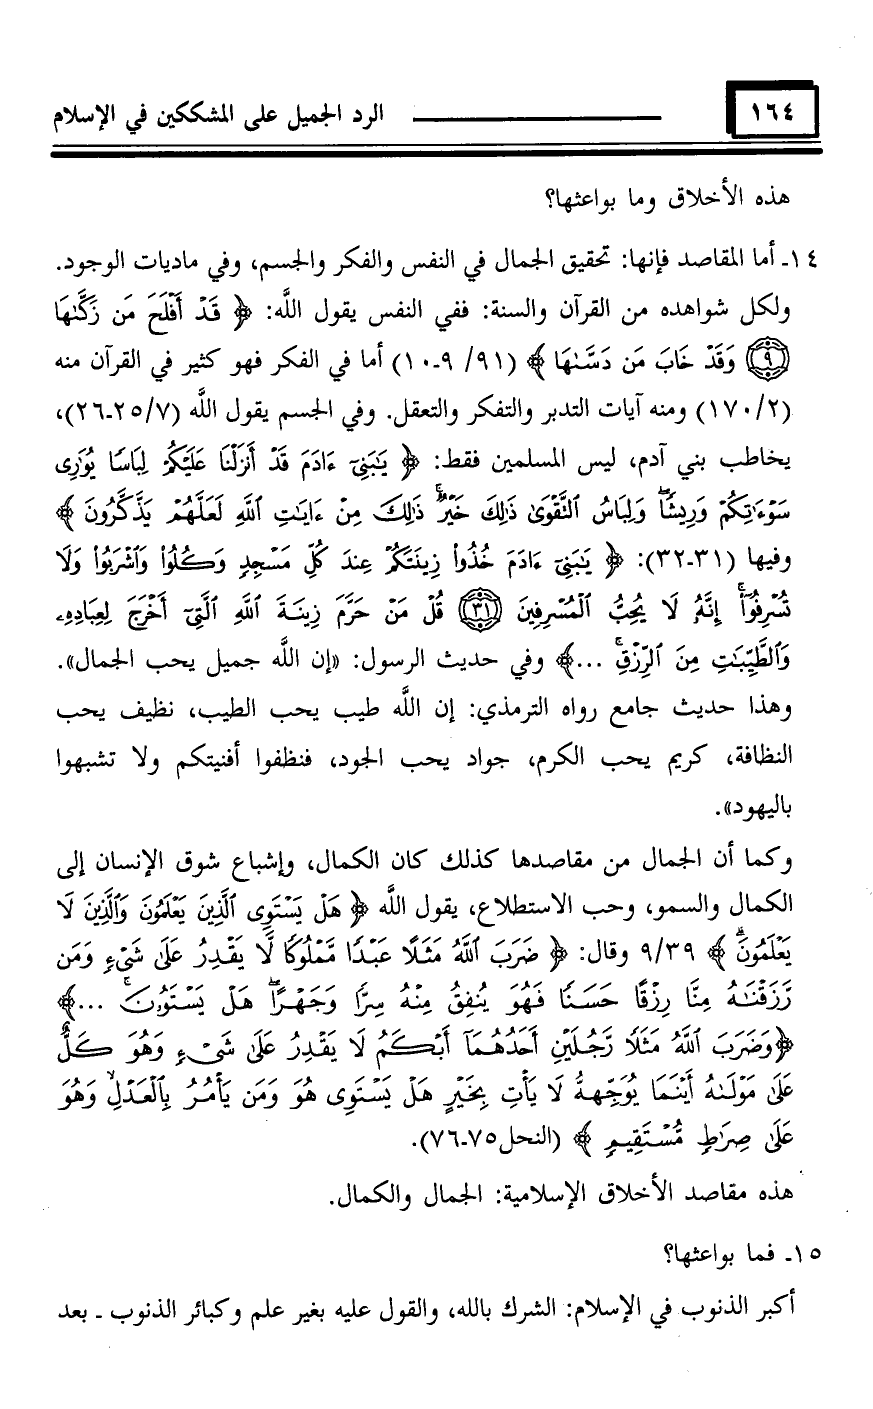 ١٦٤ الرد الجميل على المشككين في الإسلام
هذه الأخلاق وما بواعثها؟
١٤ـ أما المقاصد فإنها: تحقيق الجمال في النفس والفكر والجسم، وفي ماديات الوجود.
ولكل شواهده من القرآن والسنة: ففي النفس يقول اللَّه: ﴿ قَدْ أَفْلَحَ مَن زَكَّىٰهَا
﴿٩﴾ وَقَدْ خَابَ مَن دَسَّىٰهَا ﴾ (٩١/ ٩ـ١٠) أما في الفكر فهو كثير في القرآن منه
(١٧٠/٢) ومنه آيات التدبر والتفكر والتعقل. وفي الجسم يقول اللَّه (٢٥/٧ـ٢٦)،
يخاطب بني آدم، ليس المسلمين فقط: ﴿ يَٰبَنِيٓ ءَادَمَ قَدْ أَنزَلْنَا عَلَيْكُمْ لِبَاسًا يُوَٰرِى
سَوْءَٰتِكُمْ وَرِيشًا ۖ وَلِبَاسُ ٱلتَّقْوَىٰ ذَٰلِكَ خَيْرٌ ۚ ذَٰلِكَ مِنْ ءَايَٰتِ ٱللَّهِ لَعَلَّهُمْ يَذَّكَّرُونَ ﴾
وفيها (٣١ـ٣٢): ﴿ يَٰبَنِيٓ ءَادَمَ خُذُوا۟ زِينَتَكُمْ عِندَ كُلِّ مَسْجِدٍ وَكُلُوا۟ وَٱشْرَبُوا۟ وَلَا
تُسْرِفُوٓا۟ ۚ إِنَّهُۥ لَا يُحِبُّ ٱلْمُسْرِفِينَ ﴿٣١﴾ قُلْ مَنْ حَرَّمَ زِينَةَ ٱللَّهِ ٱلَّتِىٓ أَخْرَجَ لِعِبَادِهِۦ
وَٱلطَّيِّبَٰتِ مِنَ ٱلرِّزْقِ ۚ ...﴾ وفي حديث الرسول: «إن اللَّه جميل يحب الجمال».
وهذا حديث جامع رواه الترمذي: إن اللَّه طيب يحب الطيب، نظيف يحب
النظافة، كريم يحب الكرم، جواد يحب الجود، فنظفوا أفنيتكم ولا تشبهوا
باليهود».
وكما أن الجمال من مقاصدها كذلك كان الكمال، وإشباع شوق الإنسان إلى
الكمال والسمو، وحب الاستطلاع، يقول اللَّه ﴿ هَلْ يَسْتَوِى ٱلَّذِينَ يَعْلَمُونَ وَٱلَّذِينَ لَا
يَعْلَمُونَ ۗ ﴾ ٩/٣٩ وقال: ﴿ ضَرَبَ ٱللَّهُ مَثَلًا عَبْدًا مَّمْلُوكًا لَّا يَقْدِرُ عَلَىٰ شَىْءٍ وَمَن
رَّزَقْنَٰهُ مِنَّا رِزْقًا حَسَنًا فَهُوَ يُنفِقُ مِنْهُ سِرًّا وَجَهْرًا ۖ هَلْ يَسْتَوُۥنَ ۚ ...﴾
﴿وَضَرَبَ ٱللَّهُ مَثَلًا رَّجُلَيْنِ أَحَدُهُمَآ أَبْكَمُ لَا يَقْدِرُ عَلَىٰ شَىْءٍ وَهُوَ كَلٌّ
عَلَىٰ مَوْلَىٰهُ أَيْنَمَا يُوَجِّههُّ لَا يَأْتِ بِخَيْرٍ هَلْ يَسْتَوِى هُوَ وَمَن يَأْمُرُ بِٱلْعَدْلِ ۙ وَهُوَ
عَلَىٰ صِرَٰطٍ مُّسْتَقِيمٍ ﴾ (النحل٧٥ـ٧٦).
هذه مقاصد الأخلاق الإسلامية: الجمال والكمال.
١٥ـ فما بواعثها؟
أكبر الذنوب في الإسلام: الشرك بالله، والقول عليه بغير علم وكبائر الذنوب ـ بعد